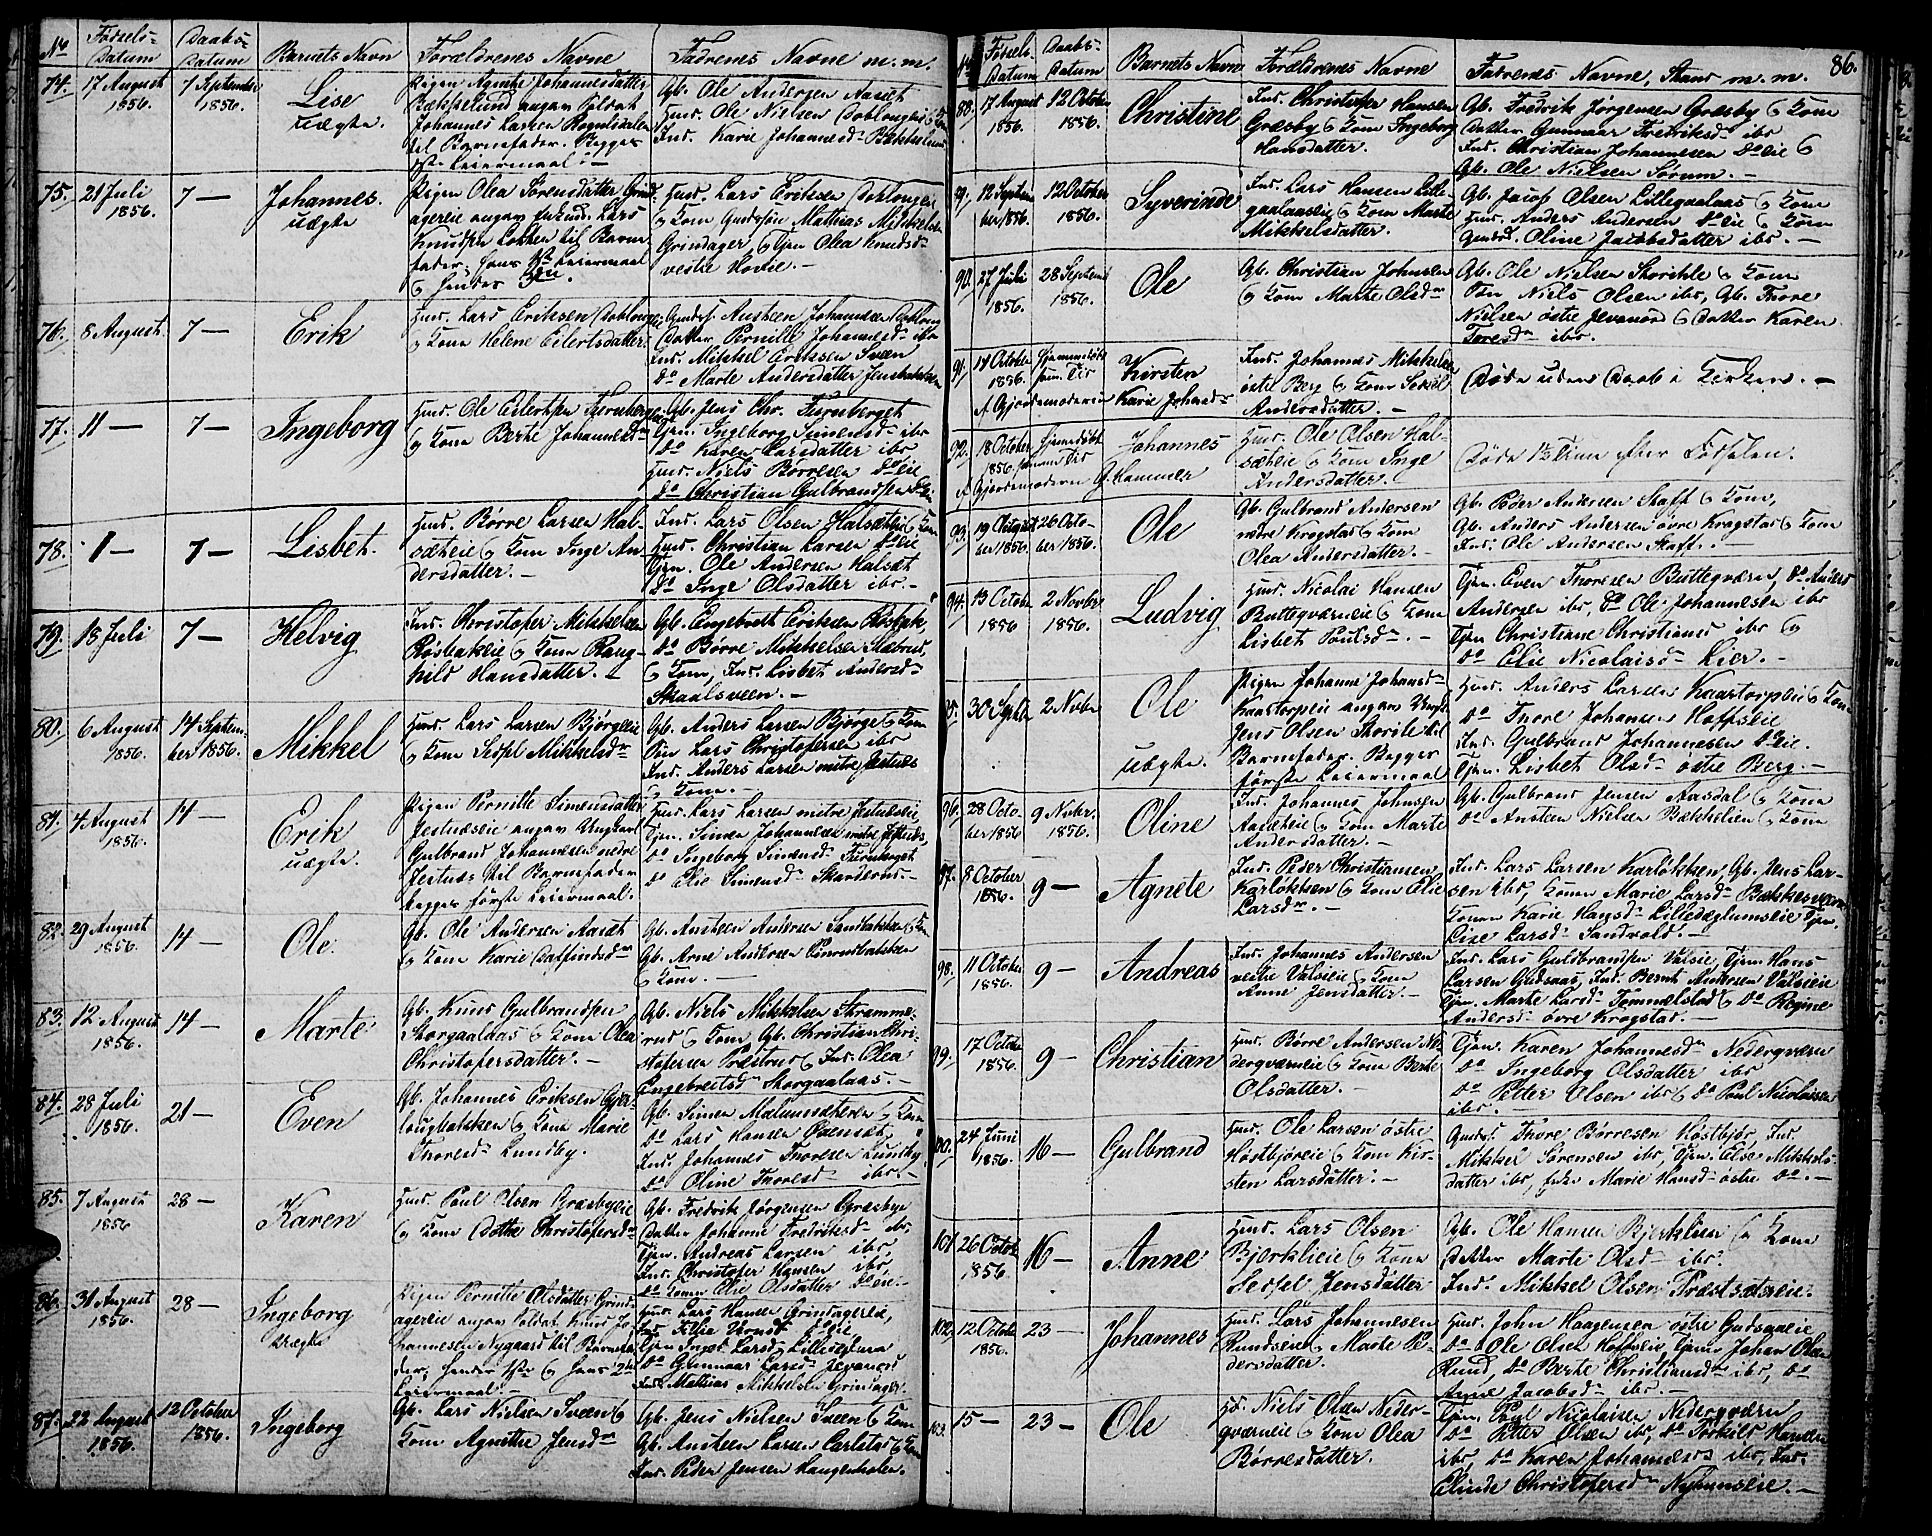 No Fødsels-Datum Daabs-Datum Barnets Navn Forældrenes Navne Fadrenes Navne m. m.
74. 17 August 1856. 7 September 1856. Lise uægte.
Pigen Agnethe Johannesdatter
Bækkelund angav Soldat
Johannes Larsen
til Barnefader. Begges
første Leiermaal. —
Gb. Ole Andersen Aaset
Huus. Ole Nielsen
Ind. Karie Johannesd.
75. 21 Juli 1856. 7 — Johannes. uægte
Pigen Olea Sørensdatter Grind-
agereie angav Lars
Knudsen Løkken til Barne-
fader, hans 1ste Leiermaal
og hendes 3die.
Huus. Lars Eriksen
og Kone Gudsf. Mathias Mikkelsen
Grindager, og Tjen. Olea Knudsd.
vestre Hovie. —
76. 8 August. 7 — Erik
Huus. Lars Eriksen
og Kone Helene Eilertsdatter.
Gudsf. Austeen Johannesen
Datter Pernille Johannesd. ibr
Ind. Mikkel Eriksen Sveen
Do Marte Andersdatter
77. 11 — 7 — Ingeborg
Huus. Ole Eilertsen
og Kone Berte Johannesd.
Gb. Jens Chr. Furuberget
Tjen. Ingeborg Simensd. ibr
Do Karen Larsdatter ibr
Huus. Niels Børresen Do eie
Do Christian Gulbrandsen
78. 1 — 7 — Lisbet.
Huus. Børre Larsen Hal-
sæteie og Kone Inge An-
dersdatter. —
Ind. Lars Olsen Halsæteie og Kone
Huus. Christian Larsen Do eie
Tjen. Ole Andersen Halsæt
Do Inge Olsdatter ibr. —
79. 18 Juli 7 — Helvig
Ind. Christofer Mikkelsen
Røsbakeie og Kone Rang-
hild Hansdatter. —
Gb. Engebreth Eriksen Røsbak,
Do Børre Mikkelsen
og Kone, Ind. Lisbet Andersd.
Skaalsveen. —
80. 6 August 1856. 14 Septem-ber 1856. Mikkel
Huus. Lars Larsen Bjørgeeie
og Kone Sespel Mikkelsd.
Gb. Anders Larsen Bjørge og Kone
Søn Lars Christofersen ibr
Ind. Anders Larsen metre Jestnæs
og Kone. —
81. 4 August 1856. 14 — Erik uægte.
Pigen Pernille Simensdatter
Jestnæseie angav Ungkarl
Gulbrand Johannesen nedre
Jestnæs til Barnefader
begges første Leiermaal.
Huus. Lars Larsen metre Jestnæseie,
Tjen. Simen Johannesen metre Jestnæs,
Do Ingeborg Simensd. Furuberget
Do Elie Simensd. —
82. 29 August 1856. 14 — Ole.
Gb. Ole Andersen Aaset
og Kone Karie Dalfindsd.
Gb. Austeen Andersen Sandbakken og Kone
Gb. Arne Andersen
og Kone.
83. 12 August 1856. 14 — Marte
Gb. Knud Gulbrandsen
Skorgaalaas og Kone Olea
Christofersdatter. —
Gb. Niels Mikkelsen Stramme-
rud og Kone Gb. Christian Chri-
stofersen Præstrud og Ind. Olea
Engebretsd. Skorgaalaas. —
84. 28 Juli 1856. 21 — Even
Gb. Johannes Eriksen Gjer-
lougbakken og Kone Marie
Thoresd. Lundby.
Gb. Simen Mælumsæteren og Kone
Do Lars Hansen
Ind. Johannes Thoresen Lundby,
Do Oline Thoresd. ibr. —
85. 7 August 1856 28 — Karen
Huus. Poul Olsen Græsbyeie
og Kone Dotte Christofersd.
Gb. Fredrik Jørgensen Græsbye
Datter Johanne Fredriksd. ibr.
Tjen. Andreas Larsen ibr,
Ind. Christofer Hansen ibr,
Do Kone Elie Olsdatter Do eie. —
86. 31 August 1856. 28 — Ingeborg uægte
Pigen Pernille Olsdatter Grind-
agereie angav Soldat Knud Jo-
hannesen Nygaard til Barnefa-
der, hendes 1ste og hans 2det
Leiermaal. —
Huus. Lars Hansen Grindagereie,
Tjen. Inger Larsd. Lilledeglum
Do Gunnaar Larsd. Jevanord
Ind. Mathias Mikkelsen Grindager.
87. 22 August 1856. 12 October 1856. Ingeborg
Gb. Lars Nielsen Sveen og
Kone Agnethe Jensd.
Gb. Jens Nielsen Sveen og Kone
Gb. Austeen Larsen Carlstad og Kone
Ind. Peder Jensen Haugenholen.
86.
No Fødsels-Datum Daabs-Datum Barnets Navn Forældrenes Navne Fadrenes Navne, Stand m. m.
88. 17 August 1856. 12 October 1856. Christine
Ind. Christofer Hansen
Græsby og Kone Ingeborg
Hansdatter.
Gb. Fredrik Jørgensen Græsby og Kone
Datter Gunnaar Fredriksd. ibr
Ind. Christian Johannesen Do eie og
Gb. Ole Nielsen Sorum. —
89. 12 Septem-ber 1856. 12 October 1856. Syverinde
Ind. Lars Hansen Lille-
gaalaaseie og Kone Marte
Mikkelsdatter.
Gb. Jacob Olsen Lillegaalaas og Kone
Huus. Anders Andersen Do eie og Kone
Gudsf. Oline Jacobsdatter ibr. —
90. 27 Juli 1856. 28 Septemb 1856. Ole
Gb. Christian Johnsen
og Kone Marte Olsd.
Gb. Ole Nielsen Skorihle og Kone
Søn Niels Olsen ibr, Gb. Thore
Nielsen østre Jevanord og Datter Karen
Toresd. ibr.
91. 14 October 1856. Hjemmedøbt sam. Dag af Gjordemoderen Kirsten Karie Johansd.
Ind. Johannes Mikkelsen
østre Berg og Kone Sespel
Andersdatter. —
Døde uden Daab i Kirken. —
92. 18 October 1856. Hjemmedøbt samme Dag af Gjordemoderen G. Hammer Johannes
Huus. Ole Olsen Hal-
sætheie og Kone Inge
Andersdatter. —
Døde 1½ Time efter Fødselen.
93. 19 October 1856. 26 Octo-ber 1856. Ole
Gb. Gulbrand Andersen
nedre Kragstad og Kone
Olea Andersdatter. —
Gb. Peder Andersen Skaff og Kone,
Gb. Anders Andersen øvre Kragstad og Kone
Ind. Ole Andersen Skaff. —
94. 13 October 1856 2 Novber 1856. Ludvig
Huus. Nicolai Hansen
Buttegværneie og Kone
Lisbet Poulsd. —
Tjen. Even Thoresen Buttegværn, Do Anders
Andersen ibr, Do Ole Johannesen ibr
Tjen. Christiane Christiansd ibr og
Do Elie Nicolaisd. Lier. —
95. 30 Septb 2 Novbr Ole uægte.
Pigen Johanne Johansd.
Kaastorpeie angav Ungk.
Jens Olsen Skorile til
Barnefader. Begges
første Leiermaal
Huus. Anders Larsen Kaastorpeie og Kone
Do Thore Johansen Hoffseie
Ind. Gulbrand Johannesen Do eie.
Tjen. Lisbet Olsd. østre Berg. —
96. 28 Octo-ber 1856 9 Novbr. 1856. Oline
Ind. Johannes Johnsen
Aasætheie og Kone Marte
Andersdatter. —
Gb. Gulbrand Jensen Aasdal og Kone
Do Austeen Nielsen Bækkelien og Kone
97. 8 October 1856. 9 — Agnete
Ind. Peder Christiansen
Karløkken og Kone Elie
Larsd. —
Ind. Lars Larsen Karløkken, Gb. Jens Lar-
sen ibr, Kone Marie Larsd.
Konen Karie Hansd. Lilledeglumseie Tjen.
Lise Larsd. Sandvold. —
98. 11 October 1856. 9 — Andreas
Ind. Johannes Andersen
vestre Valseie og Kone
Anne Jensdatter. —
Ind. Lars Gulbrandsen Valsie, Tjen. Hans
Larsen Gudsaas, Ind. Bernt Andersen Valseie
Tjen. Marte Larsd. Tommelstad og Do Regine
Andersd. øvre Kragstad. —
99. 17 October 1856. 9 — Christian
Huus. Børre Andersen Ne-
dergværneie og Kone Berte
Olsdatter. —
Tjen. Karen Johannesd. Nedergværn
Do Ingeborg Olsdatter ibr
Do Petter Olsen ibr og Do Poul Nicolaisen
ibr. —
100. 24 Juni 1856. 16 — Gulbrand
Huus. Ole Larsen østre
Høstbjøreie og Kone Kir-
sten Larsdatter. —
Gudsf. Thore Børresen Høstbjør, Ind.
Mikkel Sørensen ibr, Tjen. Else Mikkels-
datter ibr, Marie Hansd. østre Do. —
101. 26 Octob. 1856. 16 — Anne
Huus. Lars Olsen
Bjerklieie og Kone
Sespel Jensdatter
Gb. Ole Hansen Bjerklien og Kone
Datter Marte Olsd. ibr.
Ind. Mikkel Olsen Præstsætreie.
102. 12 October 1856. 23 — Johannes
Huus. Lars Johannesen
Rundseie og Marte Pe-
dersdatter.
Huus. John Haagensen østre Gudsaaeie
Do Ole Olsen Hoffseie, Tjener Johan Olsen
Rund, Do Berte Christiansd. ibr, Do
Anne Jacobsd. ibr. —
103. 15 — 23 — Ole
Hs. Niels Olsen Neder-
gværneie og Kone Olea
Børresdatter.
Tjen. Poul Nicolaisen Nedergværn
Do Petter Olsen ibr, Do Torkild Hansen
ibr, Do Karen Johannesd ibr, Ind.
Olinde Christofersd. Nyhuusseie. —